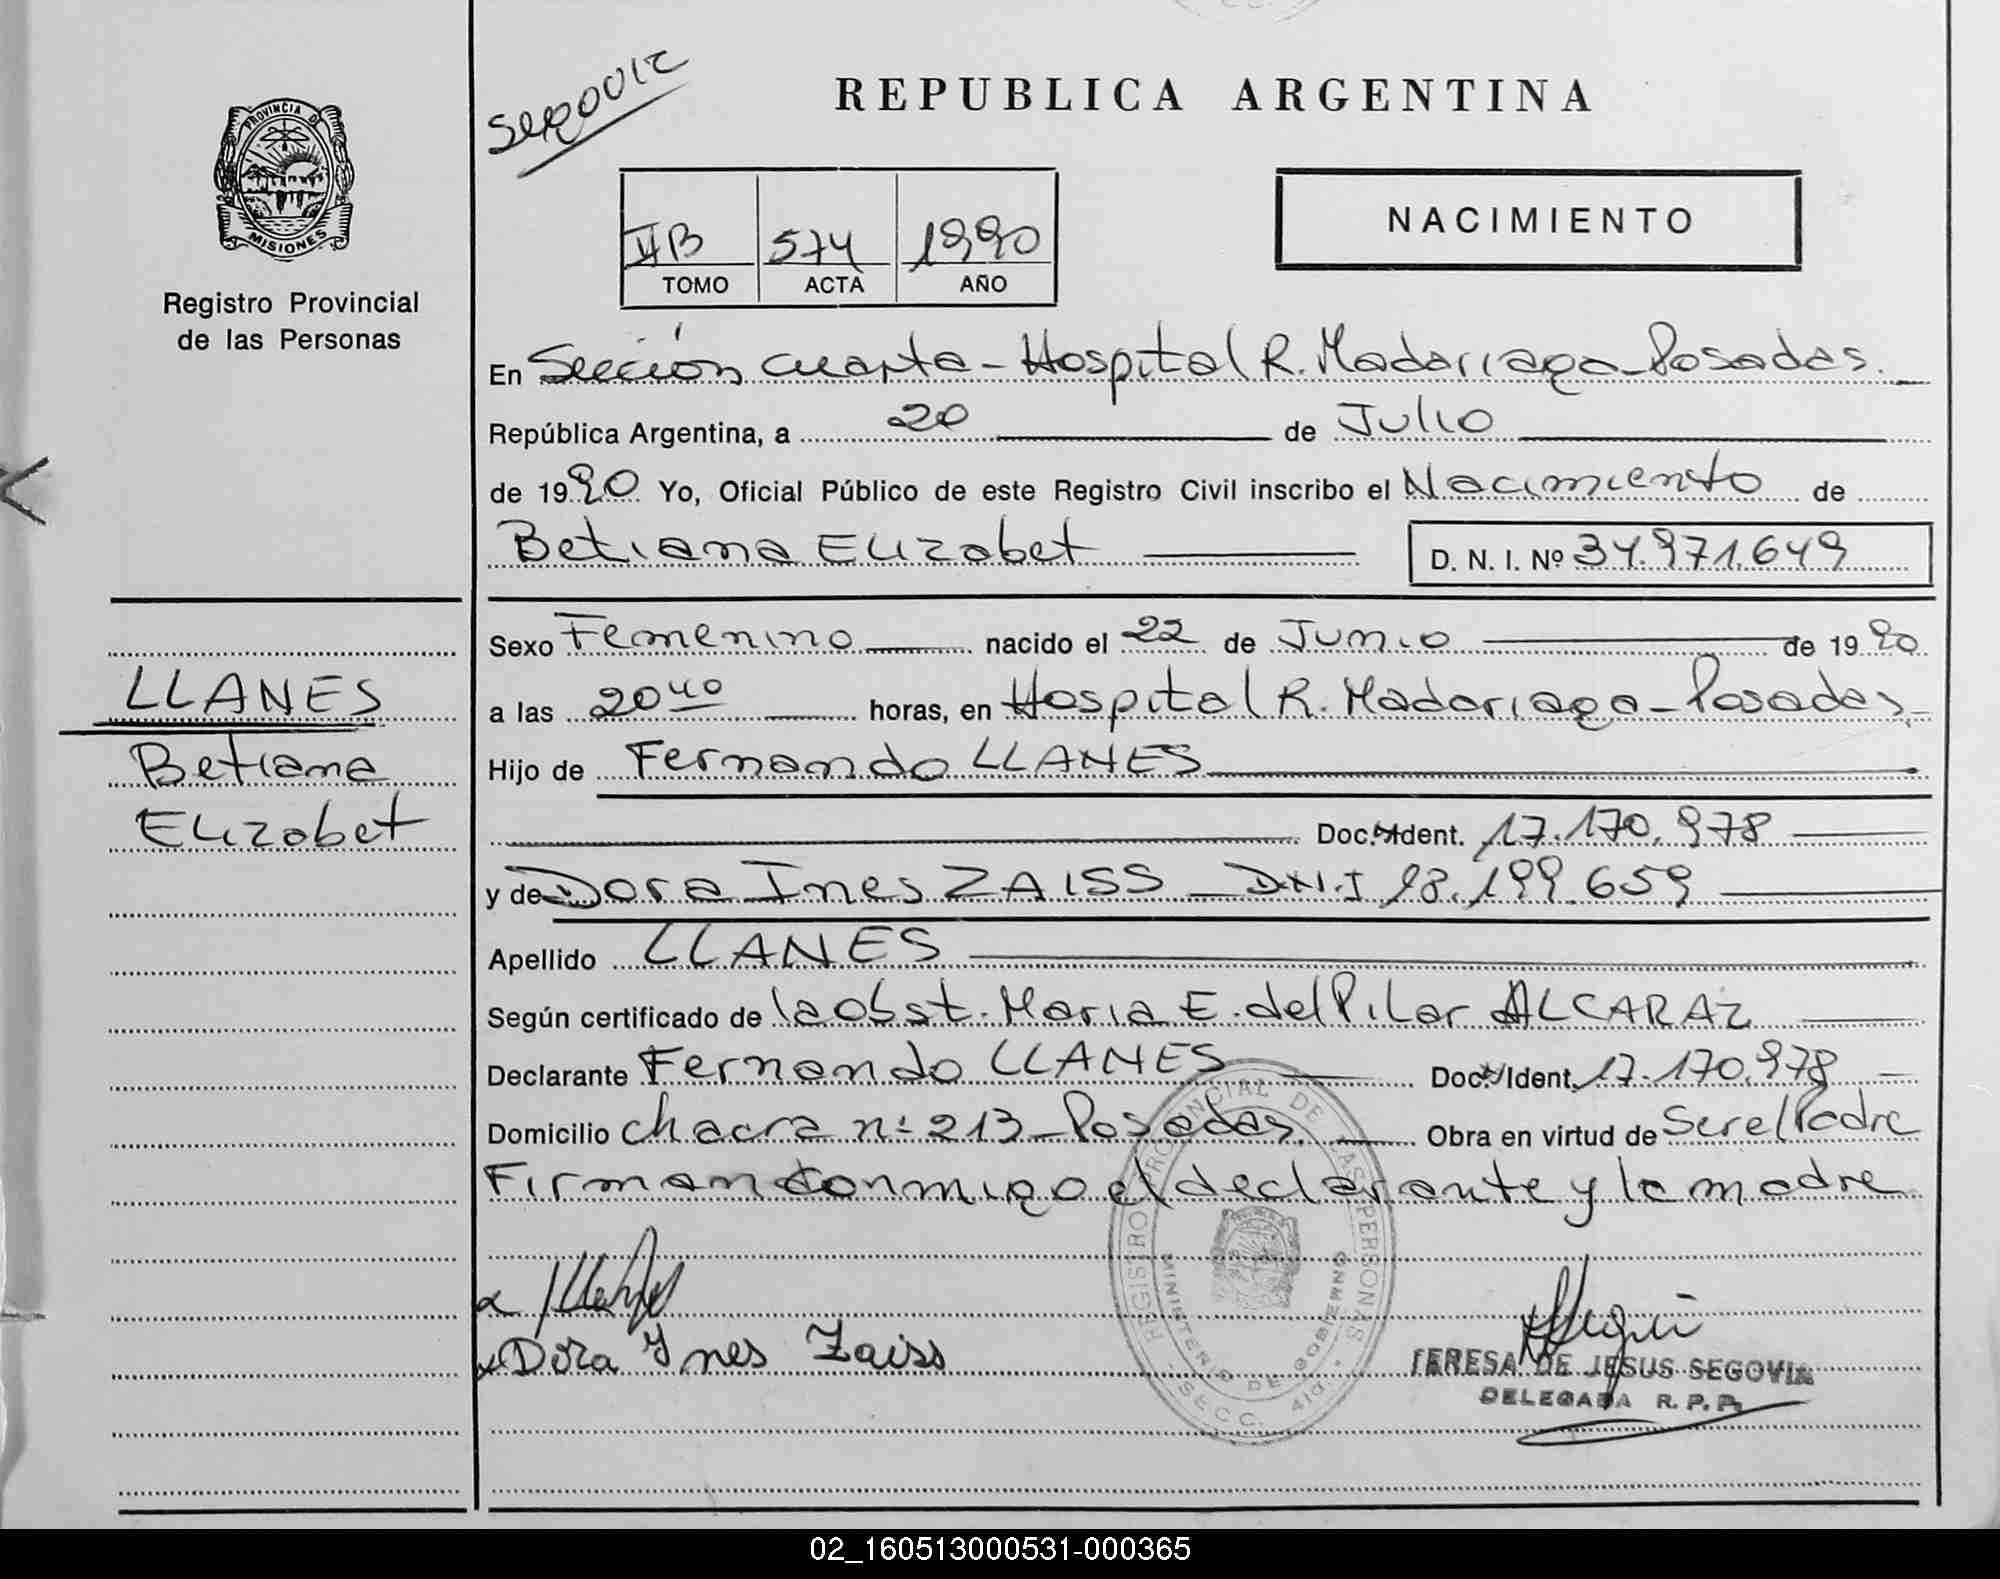 PROVINCIA DE
MISIONES
Registro Provincial
de las Personas
LLANES
Betiana
Elizabet
REPUBLICA ARGENTINA
NACIMIENTO
II B 574 1990
TOMO ACTA AÑO
En Sección cuarta - Hospital R. Madariaga - Posadas.
República Argentina, a 20 de Julio
de 1990 Yo, Oficial Público de este Registro Civil inscribo el Nacimiento de
Betiana Elizabet D. N. I. Nº 34.971.649
Sexo Femenino nacido el 22 de Junio de 1990
a las 20 40 horas, en Hospital R. Madariaga - Posadas
Hijo de Fernando LLANES
Doc. Ident. 17.170.978
y de Dora Ines ZAISS - D.N.I 18.199.659
Apellido LLANES
Según certificado de la Obst. Maria E. del Pilar ALCARAZ
Declarante Fernando LLANES Doc. Ident. 17.170.978
Domicilio chacra nº 213 - Posadas. Obra en virtud de Ser el Padre
Firman conmigo el declarante y la madre
Dora Ines Zaiss
REGISTRO PROVINCIAL DE LAS PERSONAS
MINISTERIO DE GOBIERNO
SECC. 4ta.
TERESA DE JESUS SEGOVIA
DELEGADA R. P. P.
02_160513000531-000365